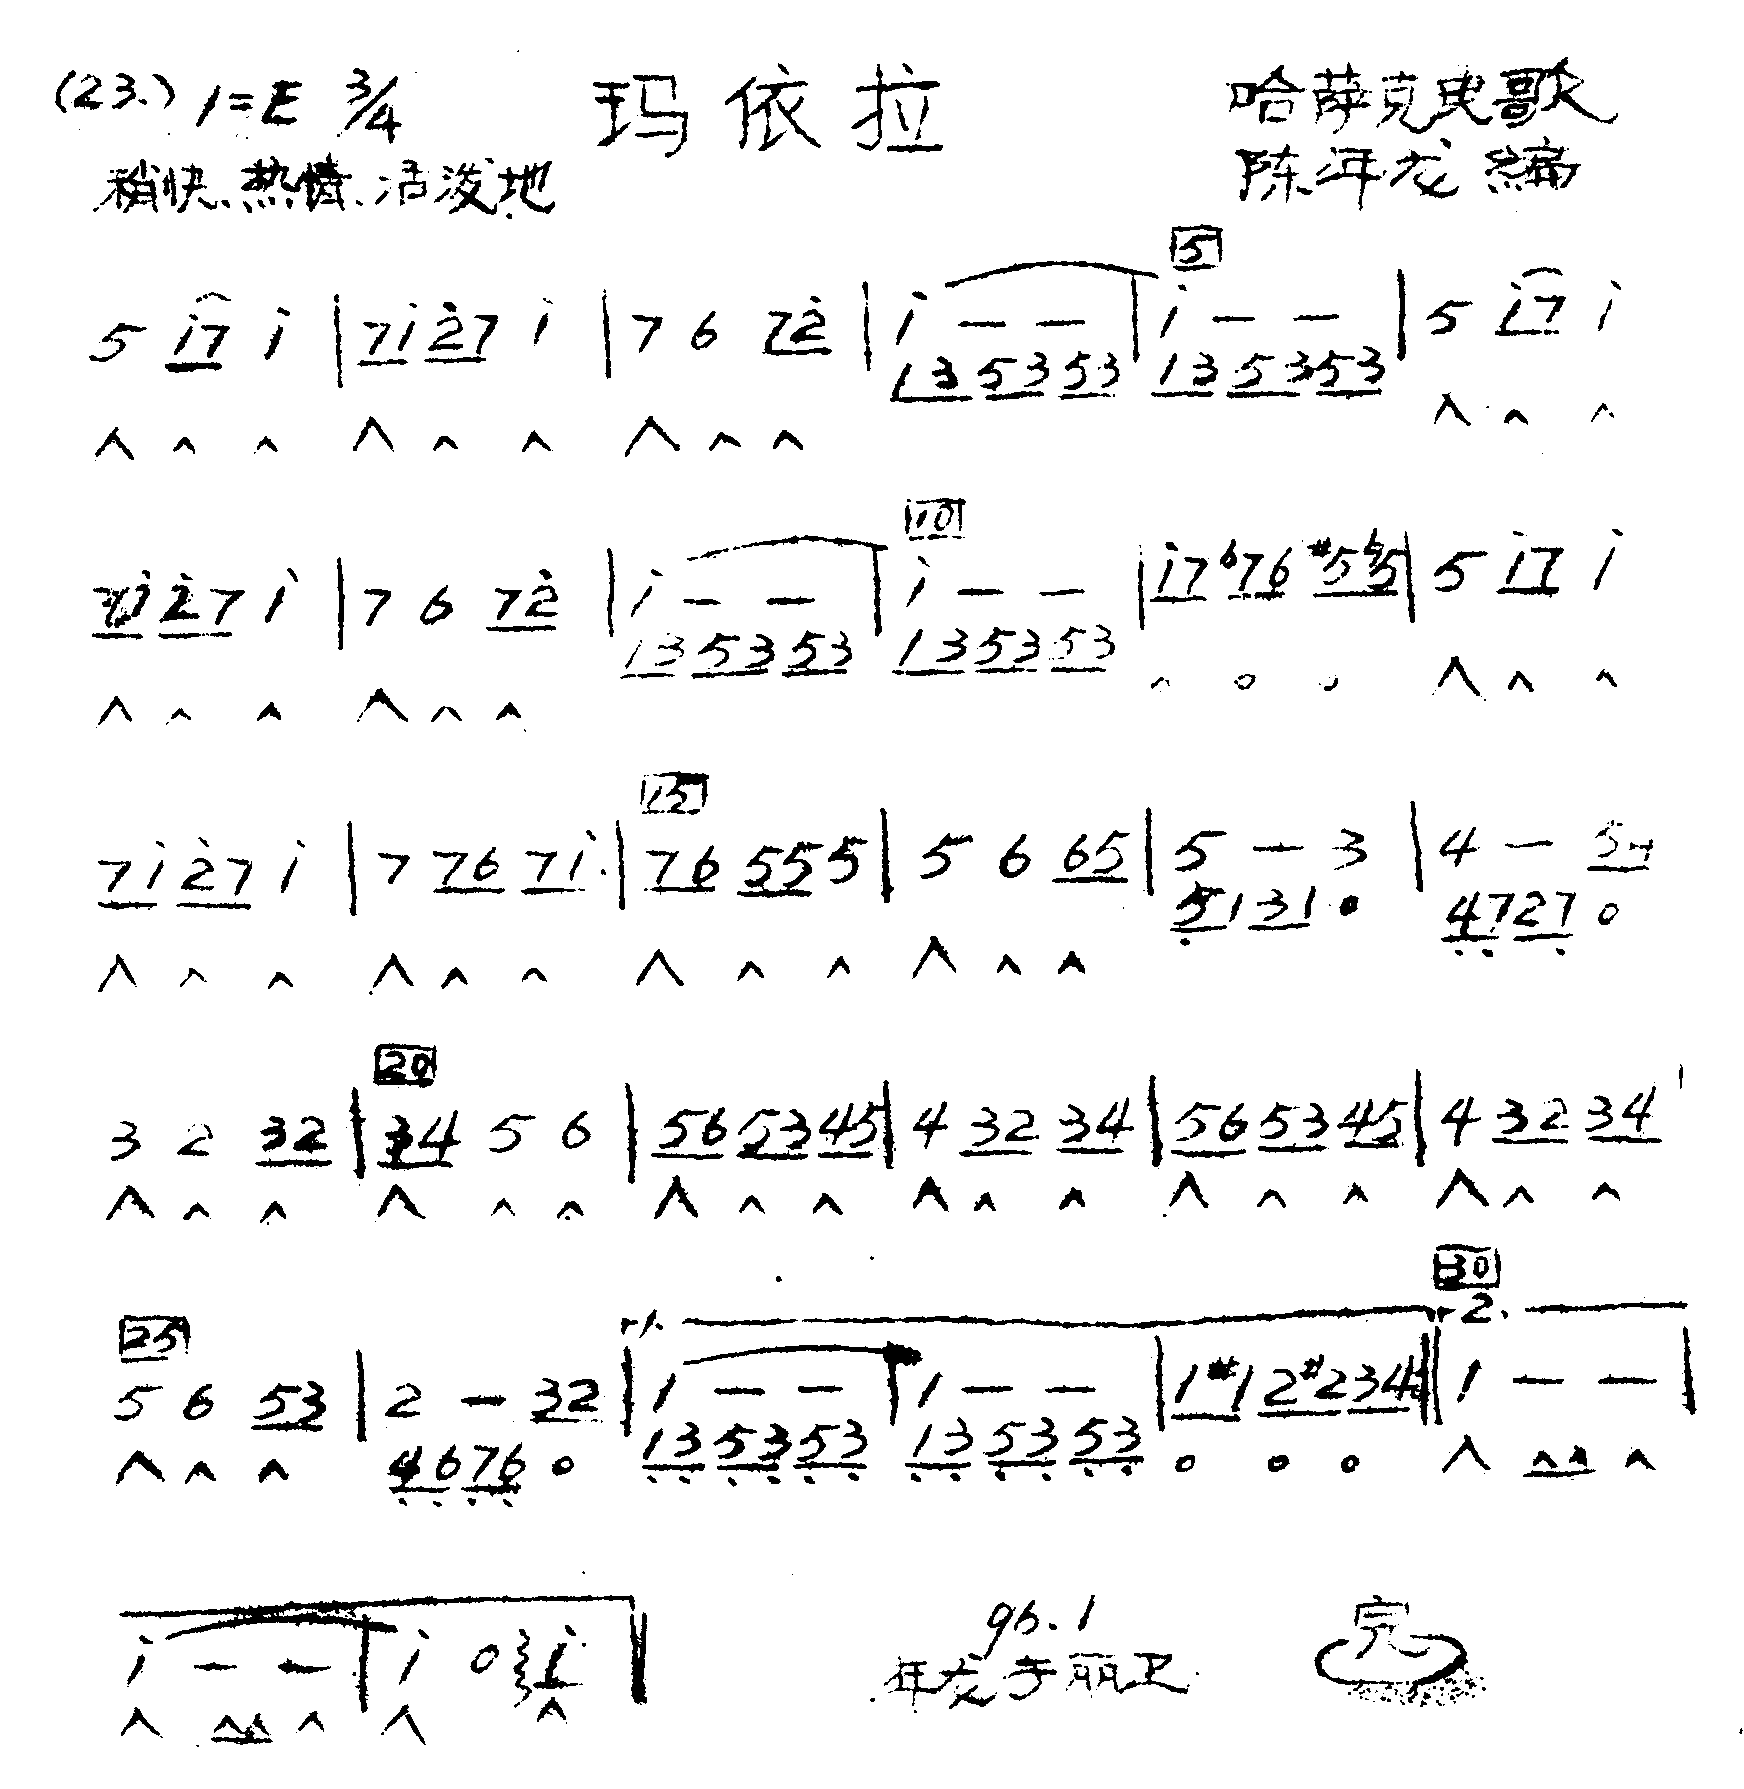 (23.) 1=E 3/4 玛依拉 哈萨克民歌
稍快、热情、活泼地 陈年龙 编
5
5 i̇7 i̇ | 7i̇ 2̇7 i̇ | 7 6 72̇ | i̇ — — | i̇ — — | 5 i̇7 i̇
13 53 53 13 53 53
∧ ∧ ∧ ∧ ∧ ∧ ∧ ∧ ∧ ∧ ∧ ∧
10
7i̇ 2̇7 i̇ | 7 6 72̇ | i̇ — — | i̇ — — | i̇7 ♭76 #5♮5 | 5 i̇7 i̇
13 53 53 13 53 53
∧ ∧ ∧ ∧ ∧ ∧ ∧ 0 0 ∧ ∧ ∧
15
7i̇ 2̇7 i̇ | 7 76 7i̇ | 76 55 5 | 5 6 65 | 5 — 3 | 4 — 54
5̣1 31 0 4̣7̣ 27̣ 0
∧ ∧ ∧ ∧ ∧ ∧ ∧ ∧ ∧ ∧ ∧ ∧
20
3 2 32 | 34 5 6 | 56 53 45 | 4 32 34 | 56 53 45 | 4 32 34
∧ ∧ ∧ ∧ ∧ ∧ ∧ ∧ ∧ ∧ ∧ ∧ ∧ ∧ ∧ ∧ ∧ ∧
30
25 1. 2.
5 6 53 | 2 — 32 | 1 — — | 1 — — | 1#1 2#2 34 || 1 — — |
∧ ∧ ∧ 4̣6̣ 7̣6̣ 0 1̣3̣ 5̣3̣ 5̣3̣ 1̣3̣ 5̣3̣ 5̣3̣ 0 0 0 ∧ ∧∧ ∧
i̇ — — | i̇ 0 i̇ ‖
∧ ∧∧ ∧ ∧ ∧
96.1 完
年龙于丽卫